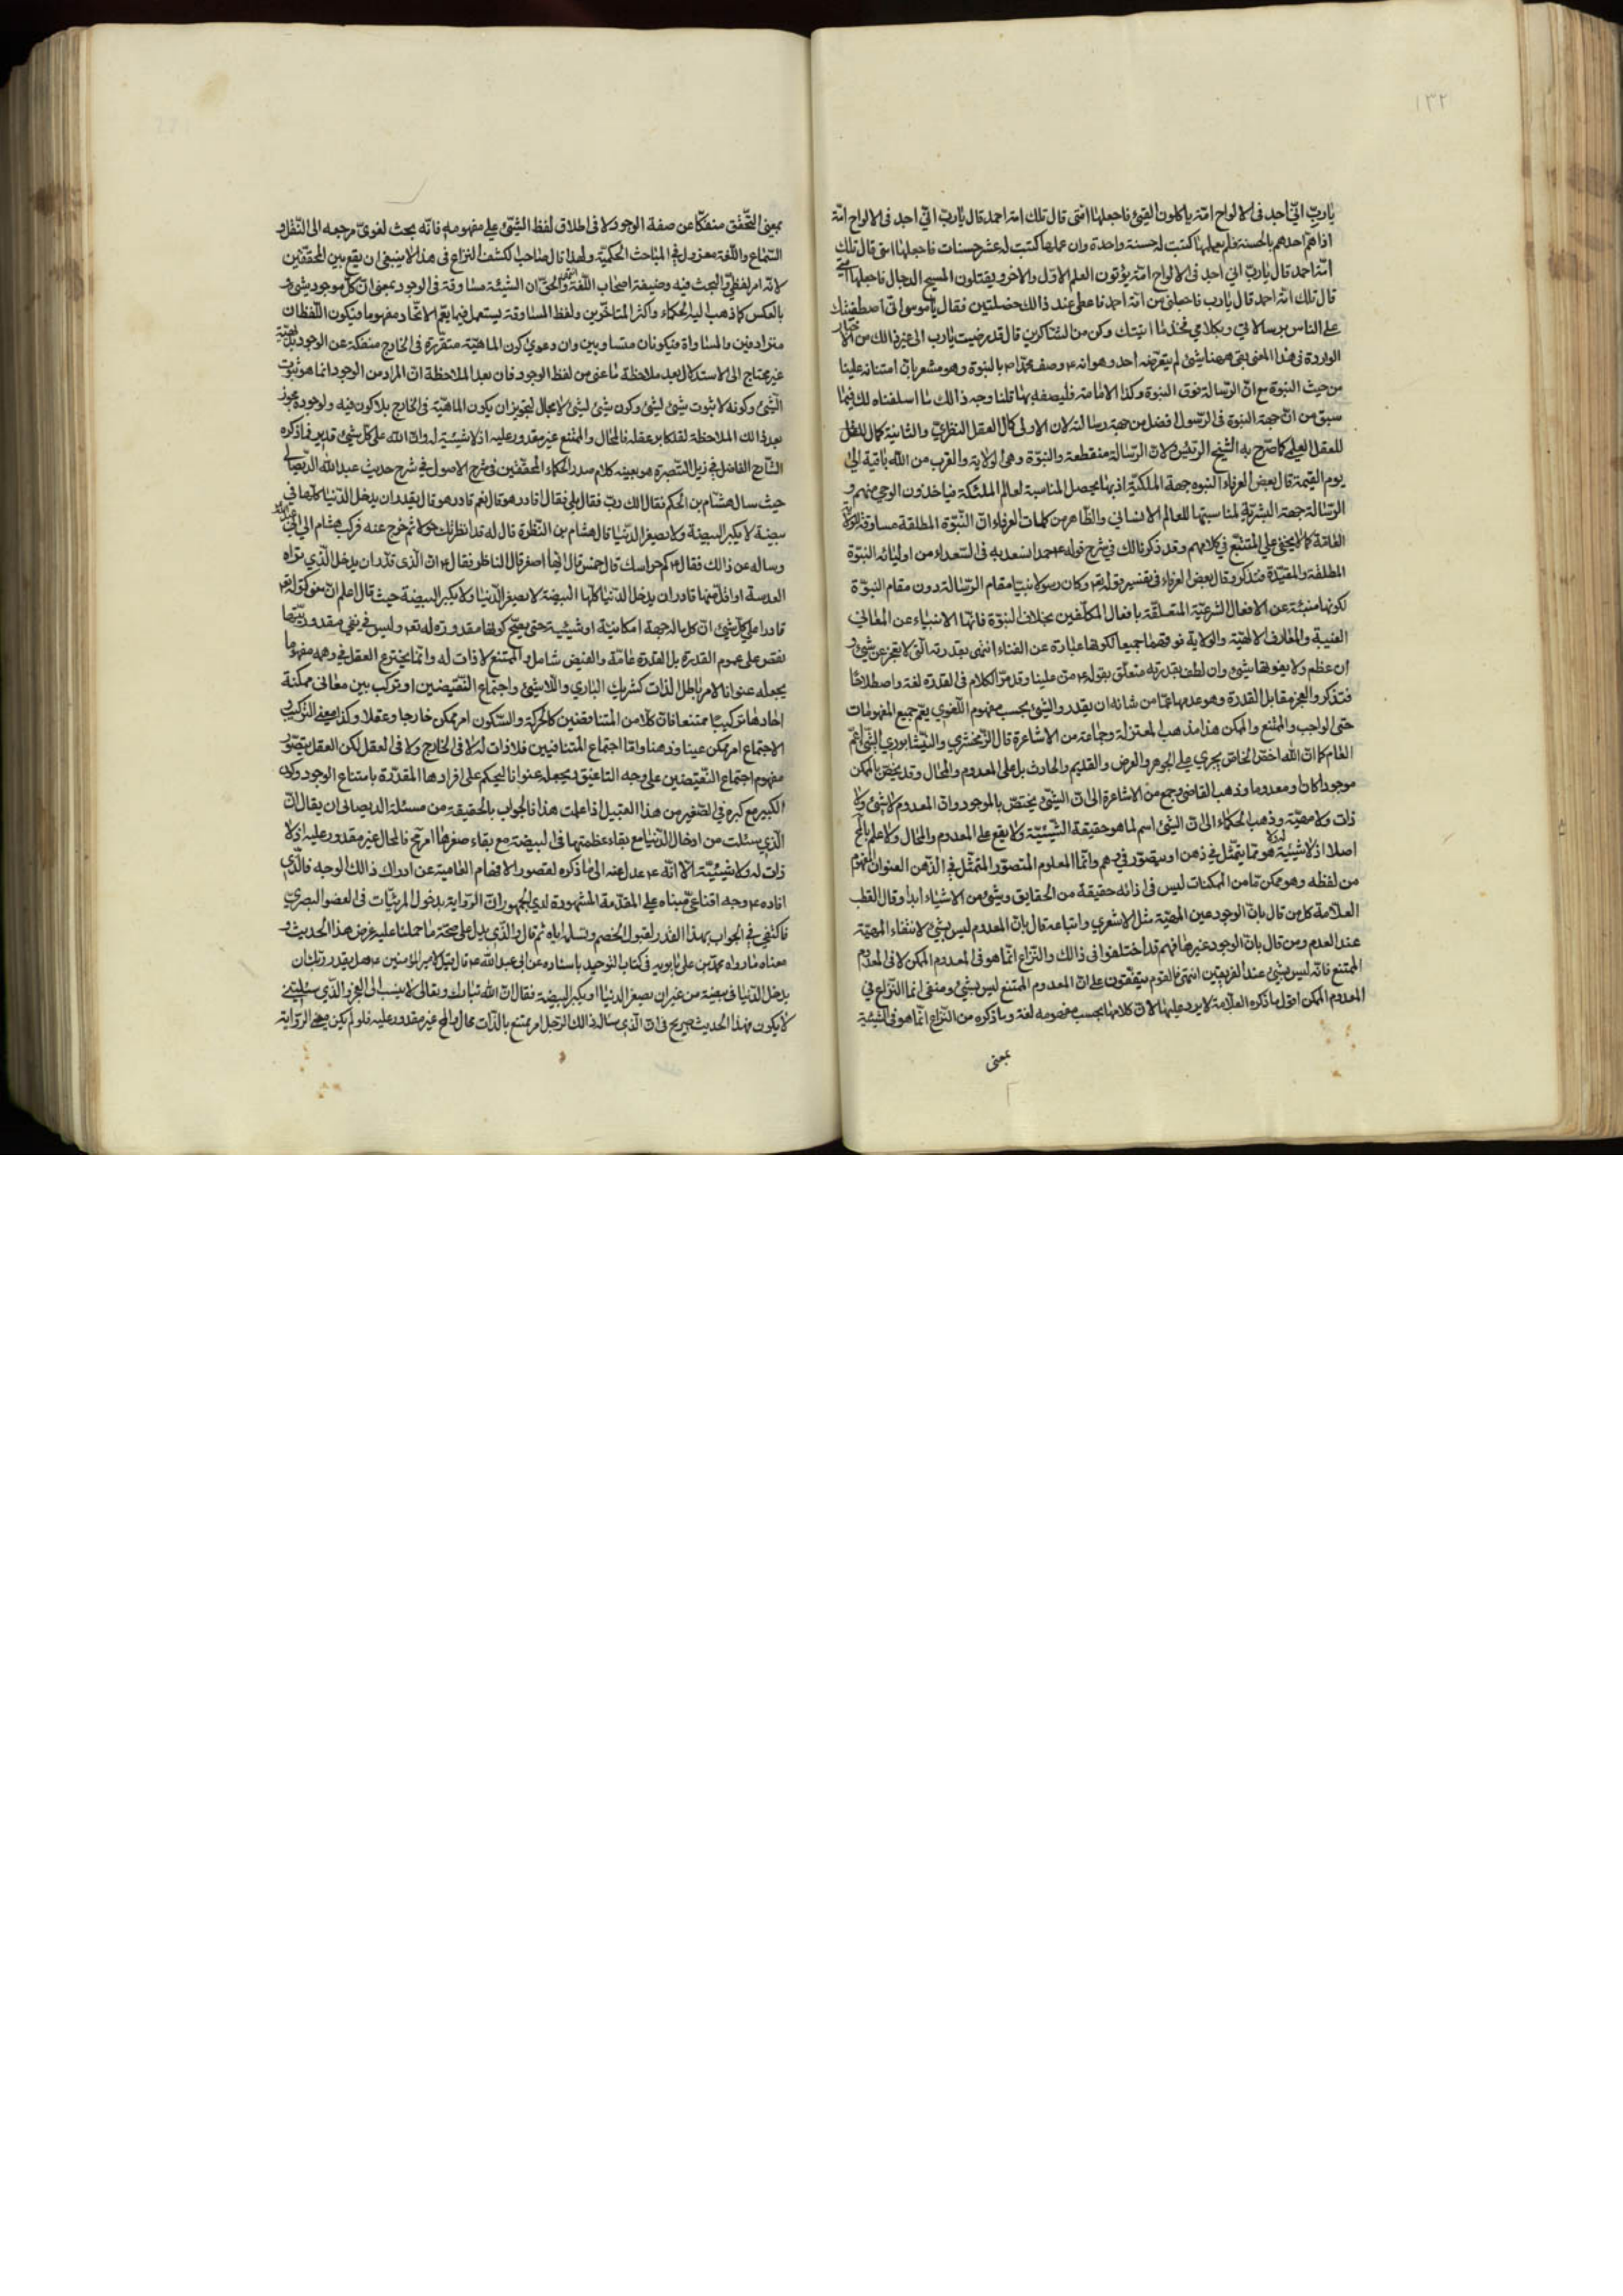 ١٣٢
يا رب اني اجد في الالواح امة ياكلون الفيئ فاجعلها امتي قال تلك امة احمد قال يا رب اني اجد في الالواح امة
اذا هم احدهم بالحسنة فلم يعملها كتبت له حسنة واحدة وان عملها كتبت له عشر حسنات فاجعلها امتي قال تلك
امة احمد قال يا رب اني اجد في الالواح امة يؤتون العلم الاول والاخر ويقتلون المسيح الدجال فاجعلها امتي
قال تلك امة احمد قال يا رب فاجعلني من امة احمد فاعطي عند ذالك خصلتين فقال يا موسى اني اصطفيتك
على الناس برسالاتي وبكلامي فخذ ما اتيتك وكن من الشاكرين قال قد رضيت يا رب الى غير ذالك من الاخبار
الواردة في هذا المعنى بقي ههنا شيئ لم يتعرضه احد وهو انه ع وصف محمدا ص بالنبوة وهو مشعر بان امتنانه علينا
من حيث النبوة مع ان الرسالة فوق النبوة وكذا الامامة فليصفه بهما قلنا وجه ذالك ما اسلفناه لك فيما
سبق من ان جهة النبوة في الرسول افضل من جهة رسالته لان الاولى كمال العقل النظري والثانية كمال للعقل
للعقل العملي كما صرح به الشيخ الرئيس ولان الرسالة منقطعة والنبوة وهي الولاية والقرب من الله باقية الى
يوم القيمة قال بعض العرفاء النبوة جهة الملكية اذ بها يحصل المناسبة لعالم الملئكة فياخذون الوحي منهم و
الرسالة جهة البشرية لمناسبتها للعالم الانساني والظاهر من كلمات العرفاء ان النبوة المطلقة مساوقة للولاية
العامة كما لا يخفى على المتتبع في كلامهم وقد ذكر ذالك في شرح قوله ع حمدا نسعد به في السعداء من اوليائه النبوة
المطلقة والمقيدة فتذكر وقال بعض العرفاء في تفسير قوله تع وكان رسولا نبيا مقام الرسالة دون مقام النبوة
لكونها منبئة عن الافعال الشرعية المتعلقة بافعال المكلفين بخلاف النبوة فانها الانبياء عن المعاني
الغيبية والمعارف الالهية والولاية فوقهما جميعا لكونها عبارة عن الفناء انتهى بقدرته التي لا تعجز عن شيئ و
ان عظم ولا يفوتها شيئ وان لطف بقدرته متعلق بقوله ع من علينا وقد مر الكلام في القدرة لغة واصطلاحا
فتذكر والعجز مقابل القدرة وهو عدمها عما من شانه ان يقدر والشيئ بحسب مفهوم اللغوي يعم جميع المفهومات
حتى الواجب والممتنع والممكن هذا مذهب المعتزلة وجماعة من الاشاعرة قال الزمخشري والنيشابوري الشيئ اعم
العام كما ان الله اخص الخاص يجري على الجوهر والعرض والقديم والحادث بل على المعدوم والمحال وقد يختص بالممكن
موجودا كان او معدوما وذهب القاضي وجمع من الاشاعرة الى ان الشيئ يختص بالموجود وان المعدوم لا شيئ ولا
ذات ولا مهية وذهب الحكماء الى ان الشيئ اسم لما هو حقيقة الشيئية ولا يقع على المعدوم والمحال ولا علم بالمح
اصلا اذ لا شيئية له ولا هو مما يتمثل في ذهن او يتصور في وهم وانما المعلوم المتصور المتمثل في الذهن العنوان المفهوم
من لفظه وهو ممكن ما من الممكنات ليس في ازائه حقيقة من الحقايق وشيئ من الاشياء ابدا وقال القطب
العلامة كل من قال بان الوجود عين المهية مثل الاشعري واتباعه قال بان المعدوم ليس بشيئ لانتفاء المهية
عند العدم ومن قال بان الوجود غيرها فهم قد اختلفوا في ذالك والنزاع انما هو في المعدوم الممكن لا في المعدوم
الممتنع فانه ليس بشيئ عند الفريقين انتهى فالقوم متفقون على ان المعدوم الممتنع ليس بشيئ ومنفي انما النزاع في
المعدوم الممكن اقول ما ذكره العلامة لا يرد عليها لان كلامها بحسب مفهومه لغة وما ذكره من النزاع انما هو في الشيئية
بمعنى
بمعنى التحقق منفكا عن صفة الوجود لا في اطلاق لفظ الشيئ على مفهومه فانه بحث لغوي مرجعه الى النقل و
السماع واللغة بمعزول في المباحث الحكمية ولهذا قال صاحب الكشف النزاع في هذا لا ينبغي ان يقع بين المحققين
لانه امر لفظي والبحث فيه وضيفة اصحاب اللغة والحق ان الشيئية مساوقة في الوجود بمعنى ان كل موجود شيئ و
بالعكس كما ذهب اليه الحكماء واكثر المتاخرين ولفظ المساوقة يستعمل فيما يعم الاتحاد مفهوما فيكون اللفظان
مترادفين والمساواة فيكونان متساويين وان دعوى كون الماهية متقررة في الخارج منفكة عن الوجود
غير محتاج الى الاستدلال بعد ملاحظة ما عنى من لفظ الوجود فان بعد الملاحظة ان المراد من الوجود انما هو ثبوت
الشيئ وكونه لا ثبوت شيئ لشيئ وكون شيئ لشيئ لا مجال لتجويز ان يكون الماهية في الخارج بلا كون فيه ولو جوده مجوز
بعد ذالك الملاحظة لقد كابر عقله فالمحال والممتنع غير مقدور عليه اذ لا شيئية له وان الله على كل شيئ قدير فما ذكره
الشارح الفاضل في ذيل التبصرة هو بعينه كلام صدر الحكماء المحققين في شرح الاصول في شرح حديث عبد الله الديصاني
حيث سال هشام بن الحكم فقال الك رب فقال بلى فقال اقادر هو قال نعم قادر هو قال يقدر ان يدخل الدنيا كلها في
بيضة لا يكبر البيضة ولا يصغر الدنيا قال هشام بن النظرة قال له قد انظرتك حولا ثم خرج عنه فركب هشام الى ابي عبد الله
وساله عن ذالك فقال ع كم حواسك قال خمس قال ايها اصغر قال الناظر فقال ع ان الذي قدر ان يدخل الذي تراه
العدسة او اقل منها قادر ان يدخل الدنيا كلها البيضة لا يصغر الدنيا ولا يكبر البيضة حيث قال اعلم ان معنى كونه تع
قادرا على كل شيئ ان كل ما له جهة امكانية او شيئية حتى يصح كونها مقدورة له تع وليس في نفي مقدوريتها
نقص على عموم القدرة بل القدرة عامة والفيض شامل والممتنع لا ذات له وانما يخترع العقل في وهمه مفهوما
يجعله عنوانا لامر باطل الذات كشريك الباري واللاشيئ واجتماع النقيضين او تركب بين معاني ممكنة
احادها تركيبا ممتنعا فان كلا من المتنافضين كالحركة والسكون امر ممكن خارجا وعقلا وكذا معنى التركيب و
الاجتماع امر ممكن عينا وذهنا واما اجتماع المتنافيين فلا ذات له لا في الخارج ولا في العقل لكن العقل يتصور
مفهوم اجتماع النقيضين على وجه التلفيق ويجعله عنوانا ليحكم على افرادها المقدرة بامتناع الوجود وكون
الكبير مع كبره في الصغير من هذا القبيل اذا علمت هذا فالجواب بالحقيقة من مسئلة الديصاني ان يقال ان
الذي سئلت من ادخال الدنيا مع بقاء عظمتها في البيضة مع بقاء صغرها امر مح فالمحال غير مقدور عليه اذ لا
ذات له ولا شيئية الا انه ع عدل عنه الى ما ذكره لقصور الافهام العامية عن ادراك ذالك الوجه فالذي
افاده ع وجه اقناعي مبناه على المقدمة المشهورة لدى الجمهور ان الرواية بدخول المرئيات في العضو البصري
فاكتفى في الجواب بهذا القدر لقبول الخصم وتسلمه اياه ثم قال والذي يدل على صحة ما حملنا عليه غرض هذا الحديث و
معناه ما رواه محمد بن علي بابويه في كتاب التوحيد باسناده عن ابي عبد الله ع قال قيل لامير المؤمنين ع هل يقدر ربك ان
يدخل الدنيا في بيضة من غير ان يصغر الدنيا او يكبر البيضة فقال ان الله تبارك وتعالى لا ينسب الى العجز والذي سئلتني
لا يكون فهذا الحديث صريح في ان الذي ساله ذالك الرجل امر ممتنع بالذات محال والمح غير مقدور عليه فلو لم يكن معنى الرواية